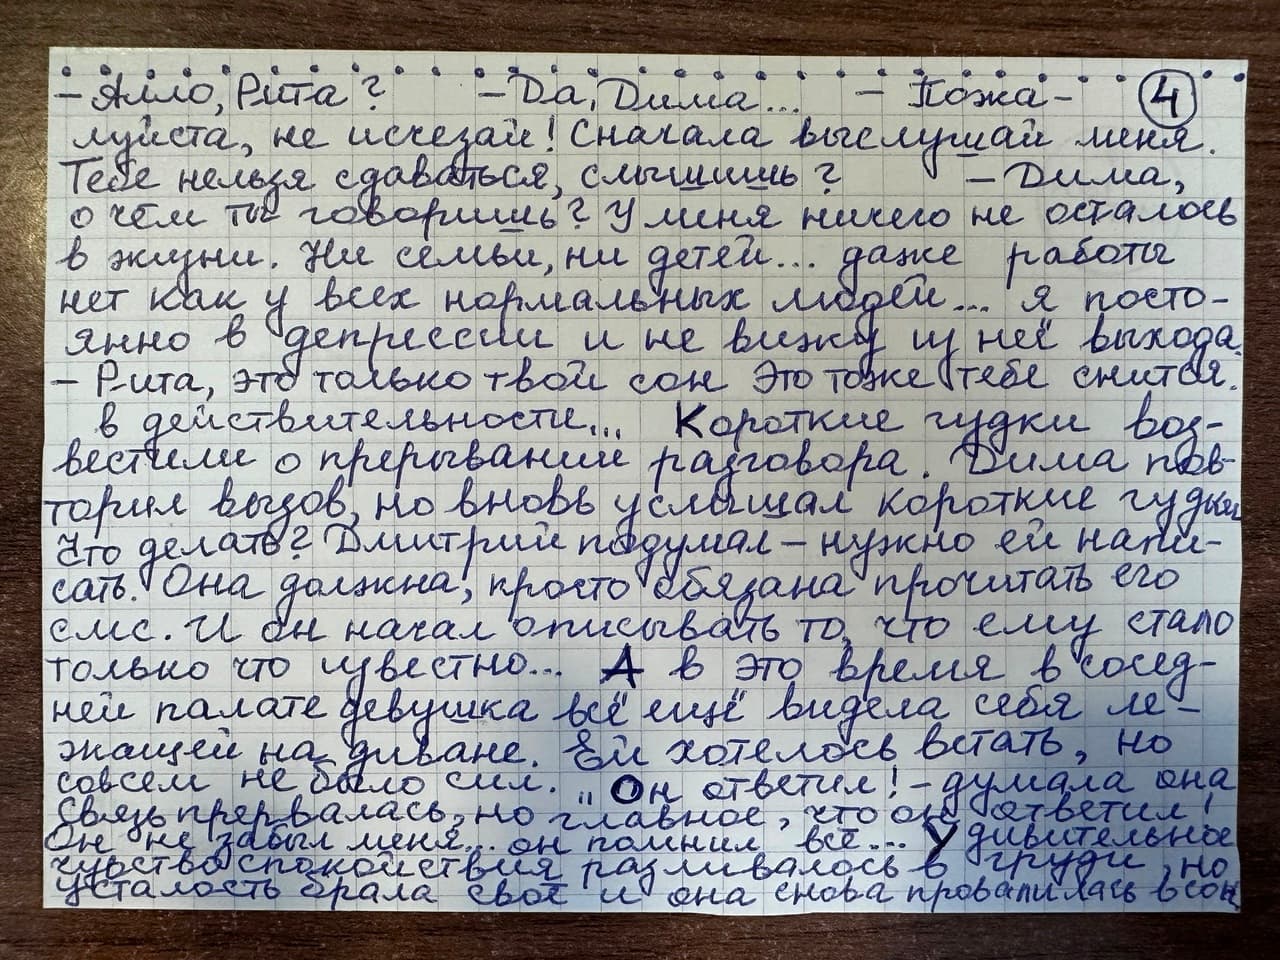 - Алло, Рита? - Да, Дима... - Пожа- 4
луйста, не исчезай! Сначала выслушай меня.
Тебе нельзя сдаваться, слышишь? - Дима,
о чём ты говоришь? У меня ничего не осталось
в жизни. Ни семьи, ни детей... даже работы
нет как у всех нормальных людей... я посто-
янно в депрессии и не вижу из неё выхода.
- Рита, это только твой сон Это тоже тебе снится.
в действительности... Короткие гудки воз-
вестили о прерывании разговора. Дима пов-
торил вызов, но вновь услышал короткие гудки
Что делать? Дмитрий подумал - нужно ей напи-
сать. Она должна, просто обязана прочитать его
смс. И он начал описывать то, что ему стало
только что известно... А в это время в сосед-
ней палате девушка всё ещё видела себя ле-
жащей на диване. Ей хотелось встать, но
совсем не было сил. „Он ответил! - думала она
Связь прервалась, но главное, что он ответил!
Он не забыл меня... он помнил всё... Удивительное
чувство спокойствия разливалось в груди, но
усталость брала своё и она снова провалилась в сон.